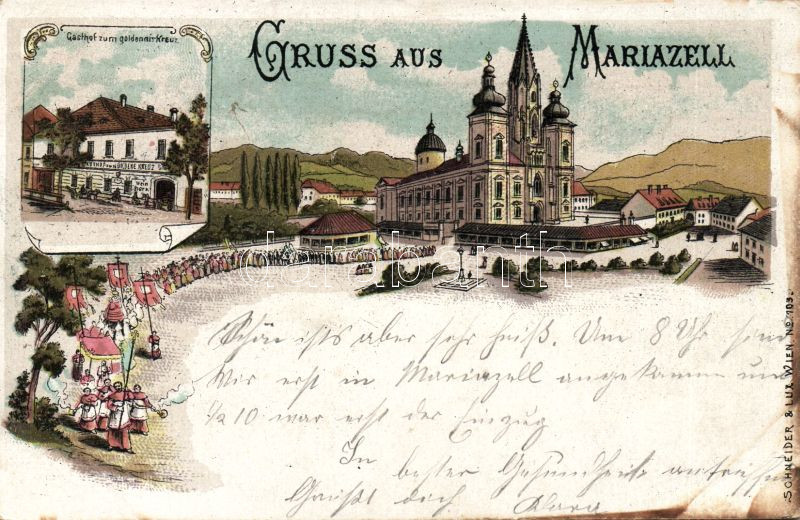 Gasthof zum goldenen Kreuz.
GRUSS AUS MARIAZELL
GASTHOF ZUM GOLDENE KREUZ
darabanth
Schön ists aber sehr heiß. Um 8 Uhr sind
Wir erst in Mariazell angekommen und
1/2 10 war erst der Einzug
In bester Gesundheit
Grüßt dich Klara
SCHNEIDER & LUX, WIEN. No. 103.